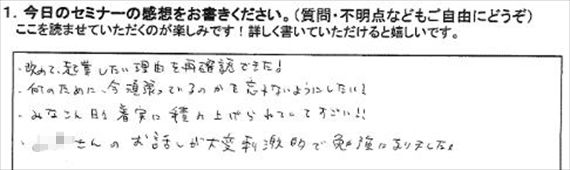 1. 今日のセミナーの感想をお書きください。(質問・不明点などもご自由にどうぞ)
ここを読ませていただくのが楽しみです！詳しく書いていただけると嬉しいです。
・改めて、起業したい理由を再確認できた！
・何のために、今頑張っているのかを忘れないようにしたい！
・みなさん日々着実に積み上げられていてすごい!!
・さんのお話しが大変刺激的で勉強になりました。